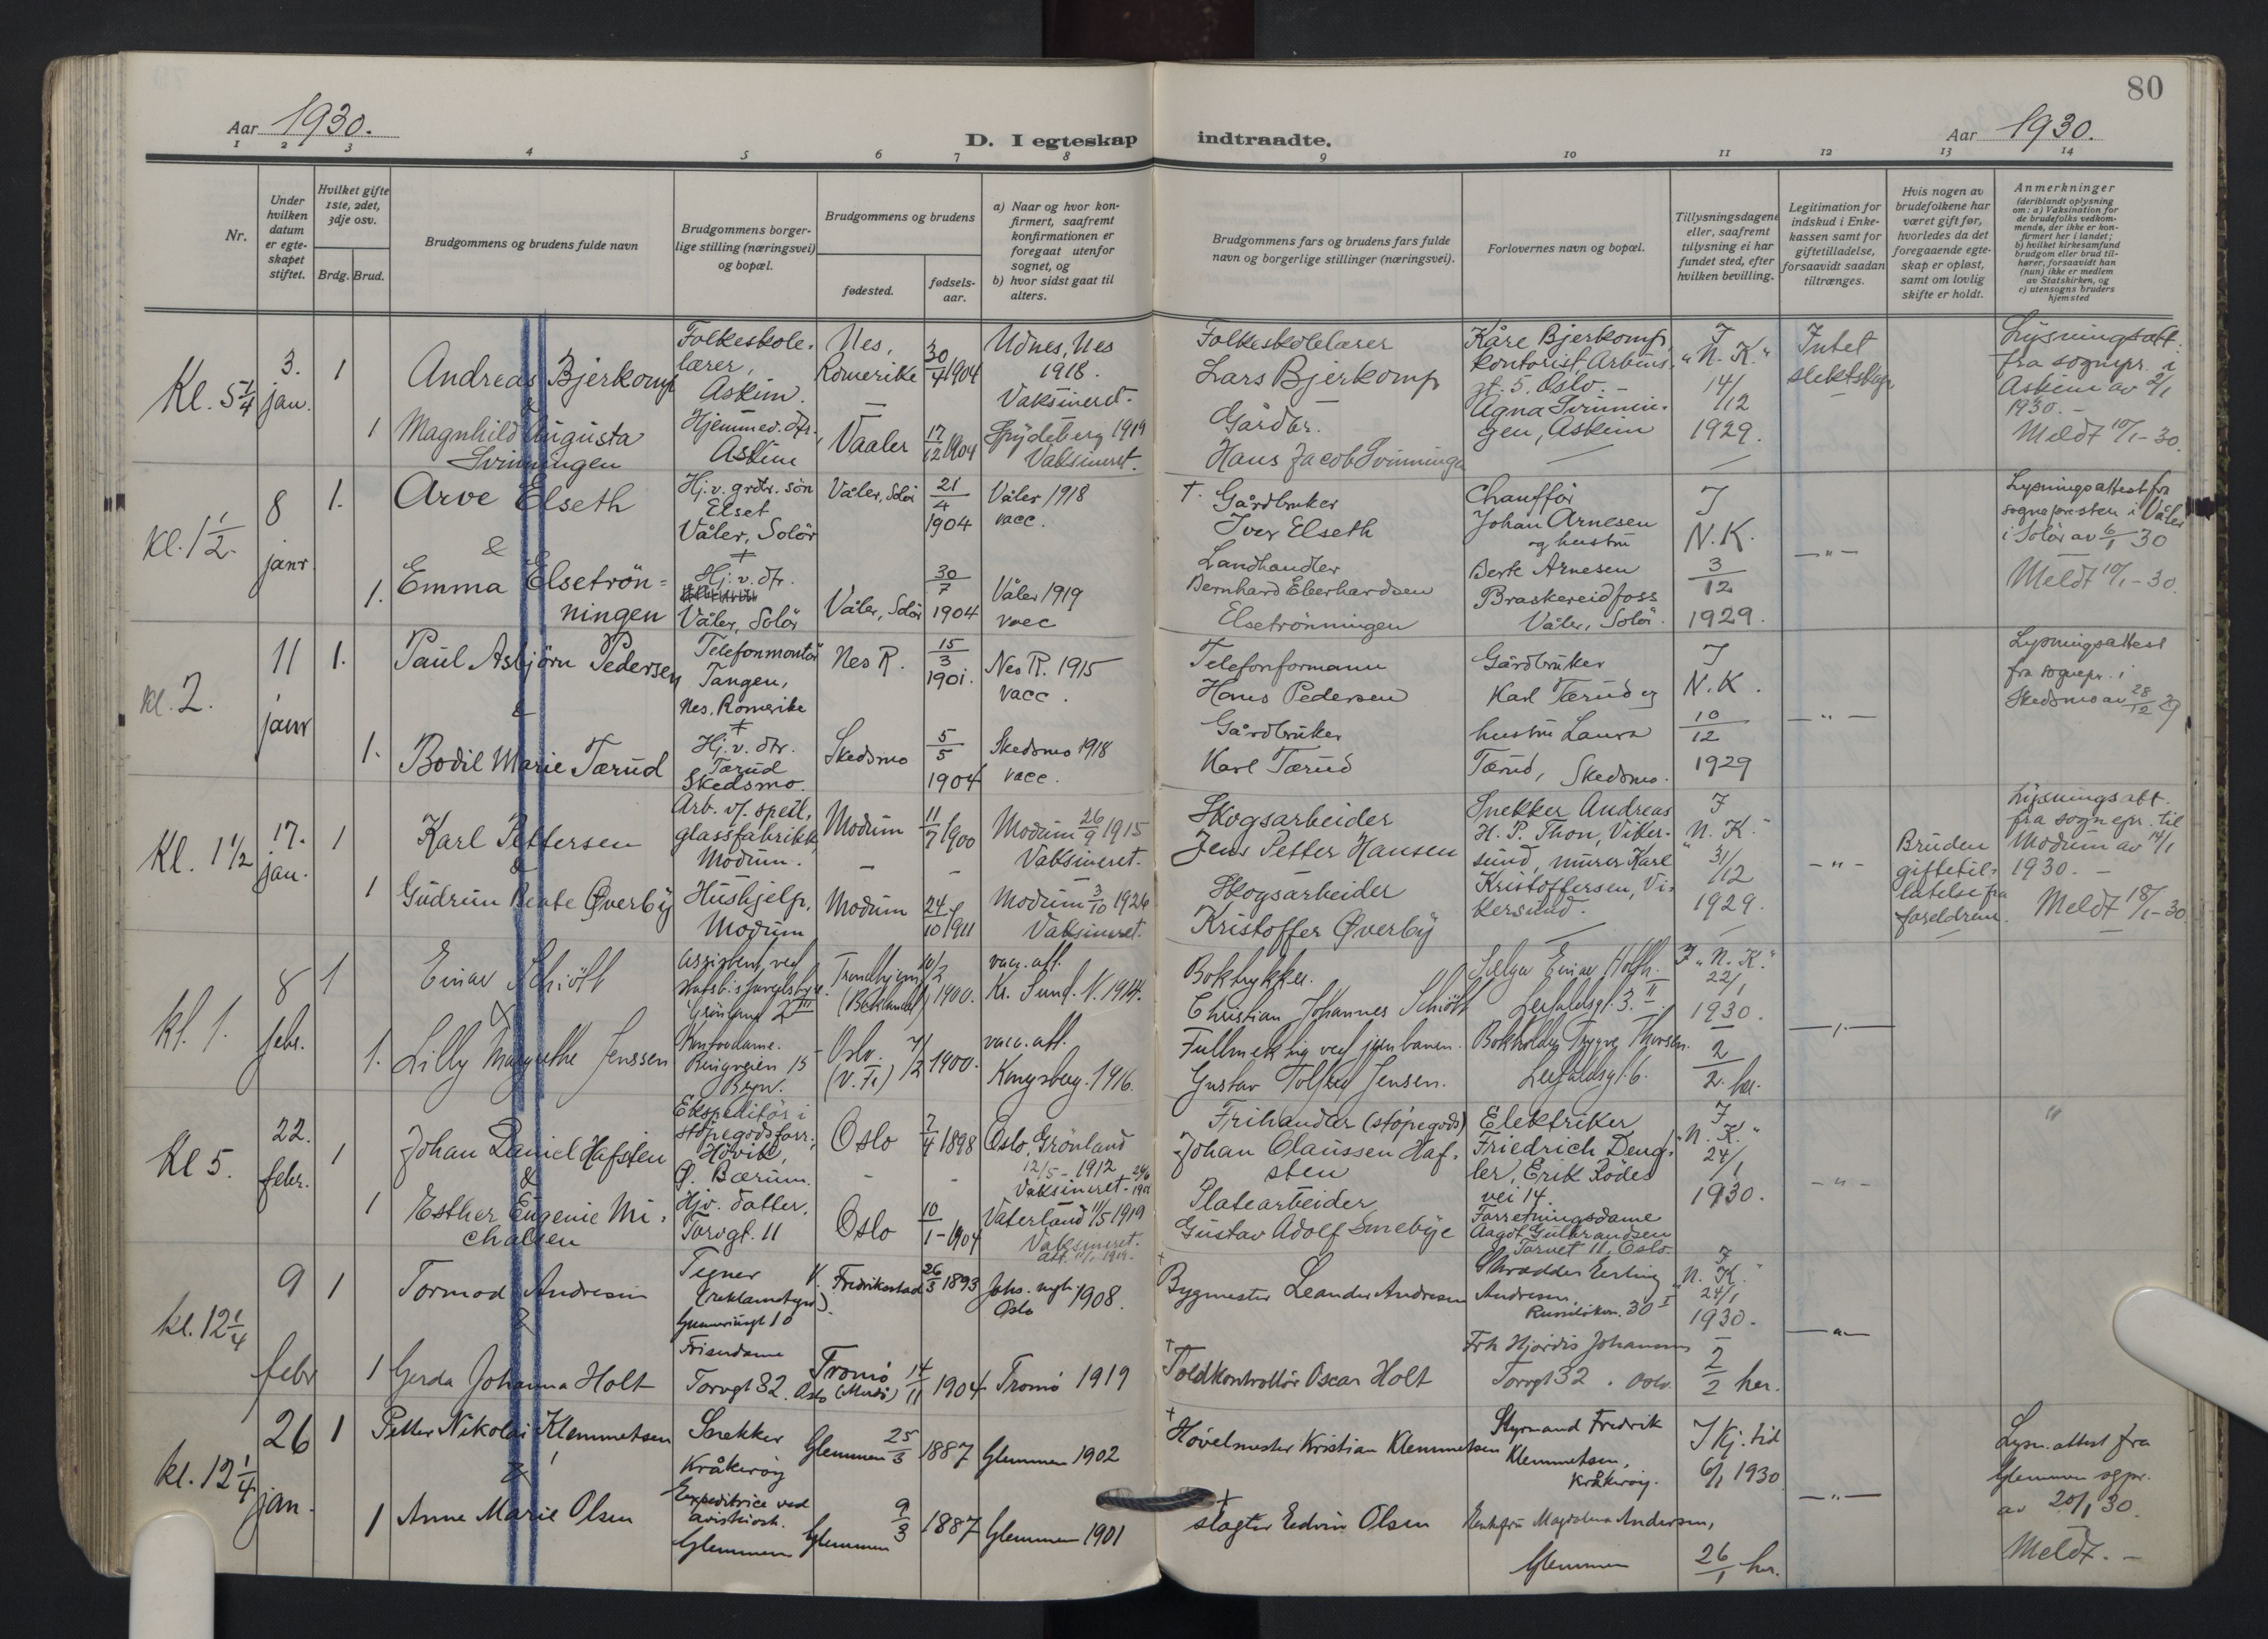 80
Aar 1930.
D. I egteskap indtraadte.
Aar 1930.
1 2 3 4 5 6 7 8 9 10 11 12 13 14
Nr.
Under hvilken datum er egteskapet stiftet.
Hvilket gifte 1ste, 2det, 3dje osv.
Brdg. Brud.
Brudgommens og brudens fulde navn
Brudgommens borgerlige stilling (næringsvei) og bopæl.
Brudgommens og brudens
fødested.
fødselsaar.
a) Naar og hvor konfirmert, saafremt konfirmationen er foregaat utenfor sognet, og
b) hvor sidst gaat til alters.
Brudgommens fars og brudens fars fulde navn og borgerlige stillinger (næringsvei).
Forlovernes navn og bopæl.
Tillysningsdagene eller, saafremt tillysning ei har fundet sted, efter hvilken bevilling.
Legitimation for indskud i Enkekassen samt for giftetilladelse, forsaavidt saadan tiltrænges.
Hvis nogen av brudefolkene har været gift før, hvorledes da det foregaaende egteskap er opløst, samt om lovlig skifte er holdt.
Anmerkninger
(deriblandt oplysning om: a) Vaksination for de brudefolks vedkommende, der ikke er konfirmert her i landet;
b) hvilket kirkesamfund brudgom eller brud tilhører, forsaavidt han (hun) ikke er medlem av Statskirken, og
c) utensogns bruders hjemsted
Kl. 5 1/4
3. jan.
1
Andreas Bjerkomp
Folkeskolelærer, Askim.
Nes, Romerike
30/4 1904
Udnes, Nes 1918. Vaksineret.
Folkeskolelærer Lars Bjerkomp
Kåre Bjerkomp, kontorist, gt. 5. Oslo.
I "N. K." 14/12 1929.
Intet slektskap
Lysningsatt. fra sognepr. i Askim av 2/1 1930.
Meldt 10/1-30.
&
1
Magnhild Augusta Svinningen
Hjemmev. dtr., Askim
Vaaler
17/12 1904
Spydeberg 1919 Vaksineret.
Gårdbr. Hans Jacob
Agna Svinningen, Askim
kl. 1 1/2.
8 janr
1.
Arve Elseth
Hj. v. grdbr. søn Elset Våler, Solör
Våler, Solör
21/4 1904
Våler 1918 vacc.
† Gårdbruker Iver Elseth
Chaufför Johan Arnesen og hustru
I N.K. 3/12 1929.
Lysningsattest fra sognepresten i Våler i Solör av 6/1 30
Meldt 10/1-30.
&
1.
Emma Elsetrönningen
Hj. v. dtr. Våler, Solör
Våler, Solör
30/7 1904
Våler 1919 vacc
Landhandler Bernhard Eberhardsen Elsetrönningen
Berte Arnesen Braskereidfoss Våler, Solör.
— " —
kl. 2.
11 janr
1.
Paul Asbjörn Pedersen
Telefonmontör Tangen, Nes, Romerike
Nes R.
15/3 1901.
Nes R. 1915 vacc.
Telefonformann Hans Pedersen
Gårdbruker Karl Tærud og hustru Laura Tærud, Skedsmo.
I N.K. 10/12 1929
— " —
Lysningsattest fra sognepr. i Skedsmo av 28/12 29
&
1.
Bodil Marie Tærud
Hj. v. dtr. Tærud Skedsmo.
Skedsmo
5/5 1904
Skedsmo 1918 vacc.
Gårdbruker Karl Tærud
Kl. 1 1/2
17. jan.
1
Karl Pettersen
Arb. v/. speilglassfabrikk, Modum.
Modum
11/7 1900
Modum 26/9 1915 Vaksineret.
Skogsarbeider Jens Petter Hansen
Snekker Andreas H. P. Thon, Vikersund, murer Karl Kristoffersen, Vikersund.
I "N. K." 31/12 1929.
— " —
Bruden giftetillatelse fra foreldrene.
Lysningsatt. fra sognepr. til Modum av 14/1 1930.
Meldt 18/1-30
&
1
Gudrun Beate Øverby
Hushjelp, Modum
Modum
24/10 1911
Modum 3/10 1926 Vaksineret.
Skogsarbeider Kristoffer Øverby
kl. 1.
8 febr.
1
Einar Schiött
Assistent ved Grönland 2 III
Trondhjem (Bakklandet)
1900.
vacc. att. Kr. Sund. N. 1914.
Boktrykker. Christian Johannes Schiött
Selger Einar Holth.
I "N. K." 22/1 1930. 2/2 her.
&
1.
Lilly Margrethe Jenssen
Kontordame. Ringveien 15
Oslo.
1900.
vacc. att. Kongsberg. 1916.
Fullmektig ved jernbanen. Gustav Jensen.
Bokholder Trygve
Kl 5.
22. febr.
1
Johan Daniel Hafsten
Ekspeditör i stöpegodsforr., Hövik, Ø. Bærum.
Oslo
7/4 1898
Oslo, Grönland 12/5 - 1912 Vaksineret
Frihandler (stöpegods) Johan Olaussen Hafsten
Elektriker Friedrich Dengler, Erik Rödes vei 14.
I "N. K." 24/1 1930.
— " —
&
1
Esther Eugenie Michalsen
Hjv. datter. Torvgt. 11
Oslo
10/1 - 1904
Vaterland 11/5 1919 Vaksineret.
Platearbeider Gustav Adolf Smebye
Forretningsdame Aagot Gulbrandsen Torvet 11, Oslo
kl. 12 1/4
9 febr
1
Tormod Andresen
Tegner (reklametegn).
Fredrikstad
26/3 1893
Johs. mgh. Oslo 1908.
† Bygmester Leander Andresen
Skredder Erling Andresen.
I "N. K." 24/1 1930. 2/2 her.
&
1
Gerda Johanna Holt
Frisördame Torvgt 32. Oslo
Tromö
14/11 1904
Tromö 1919
† Toldkontrollör Oscar Holt
Frk Hjördis Johansen Torvgt 32. Oslo.
kl. 12 1/4
26 jan.
1
Petter Nikolai Klemmetsen
Snekker Kråkeröy
Glemmen
25/3 1887
Glemmen 1902
† Hövelmester Kristian Klemmetsen
Styrmand Fredrik Klemmetsen, Kråkeröy.
I Kj. tid 6/1 1930
— " —
Lysn. attest fra Glemmen sgpr. av 20/1 30.
Meldt. —
&
1
Anne Marie Olsen
Expeditrice ved aviskiosk. Glemmen
Glemmen
9/3 1887
Glemmen 1901
† slagter Edvin Olsen
Enkefru Magdalena Andersen, Glemmen
26/1 her.